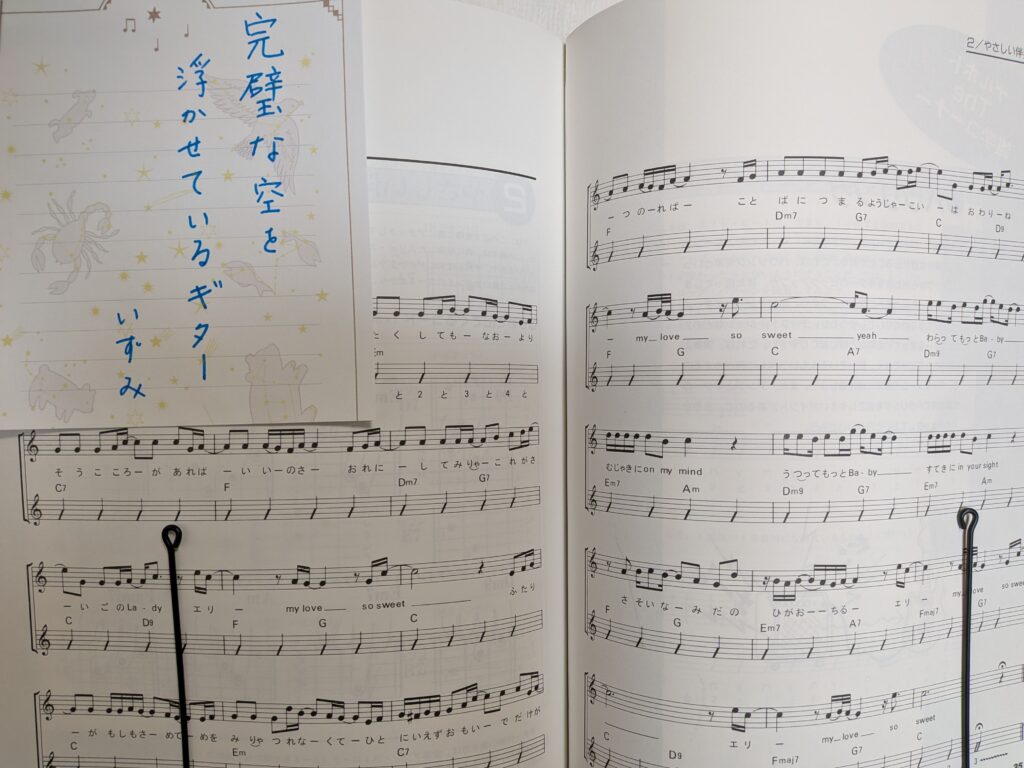 完璧な空を
浮かせているギター
いずみ
たく してもー なおー より
Em
と 2 と 3 と 4 と
そ う こ ころーが あれば ーい いーのさー おれに ー してみりゃー こ れ が さ
C7 F Dm7 G7
ーい ご の La-dy エリ ー my love so sweet ふたり
C D9 F G C
ー が もしもさーめてーめを み りゃ つ れな ー く てー ひと に いえず おも いー で だ け が
C Em C7
2／やさしい伴
ー つ の ー れ ば ー こ と ば に つ ま る ようじゃーこい ー は おわ り ー ね
F Dm7 G7 C D9
ー my love so sweet yeah わらっ て もっと Ba-by
F G C A7 Dm9 G7
むじゃきに on my mind うつっ て も っ と Ba-by すてきに in your sight
Em7 Am Dm9 G7 Em7 Am
さ そい な ー み だ の ひ が お ー ー ち る ー エ リ ー my love so sweet
F G Em7 A7 F Fmaj7 G7
エ リ ー my love so sweet
C D9 Fmaj7 C
35